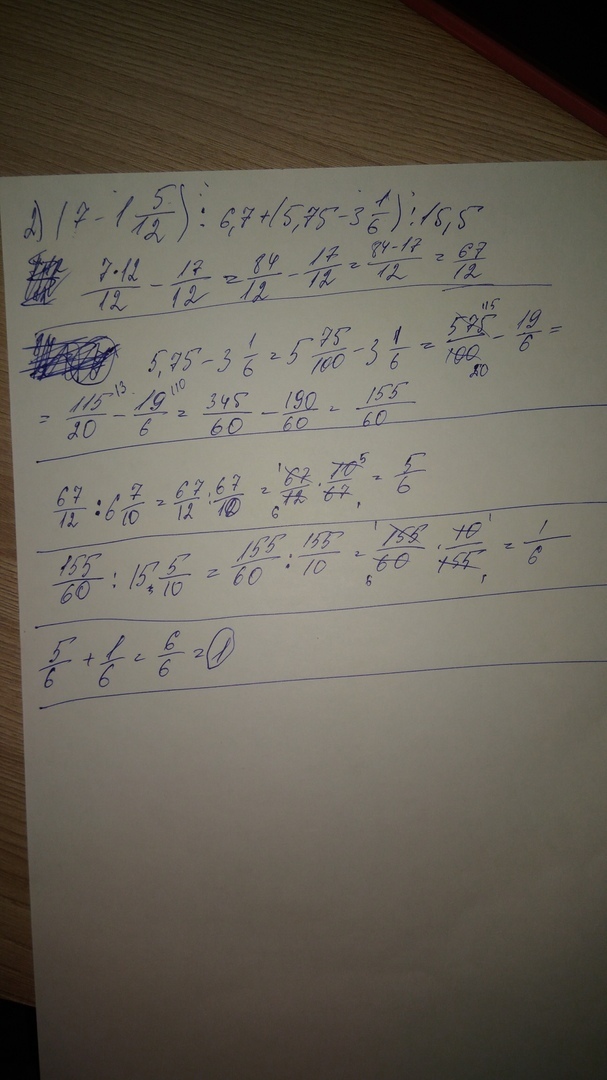 2) (7 - 1 5/12) : 6,7 + (5,75 - 3 1/6) : 15,5
7·12/12 - 17/12 = 84/12 - 17/12 = 84-17/12 = 67/12
5,75 - 3 1/6 = 5 75/100 - 3 1/6 = 575/100 115 20 - 19/6 =
= 115/20 13 - 19/6 110 = 345/60 - 190/60 = 155/60
67/12 : 6 7/10 = 67/12 : 67/10 = 1 67/12 6 · 10/67 5 1 = 5/6
155/60 : 15 5/10 = 155/60 : 155/10 = 1 155/60 6 · 10/155 1 1 = 1/6
5/6 + 1/6 = 6/6 = 1